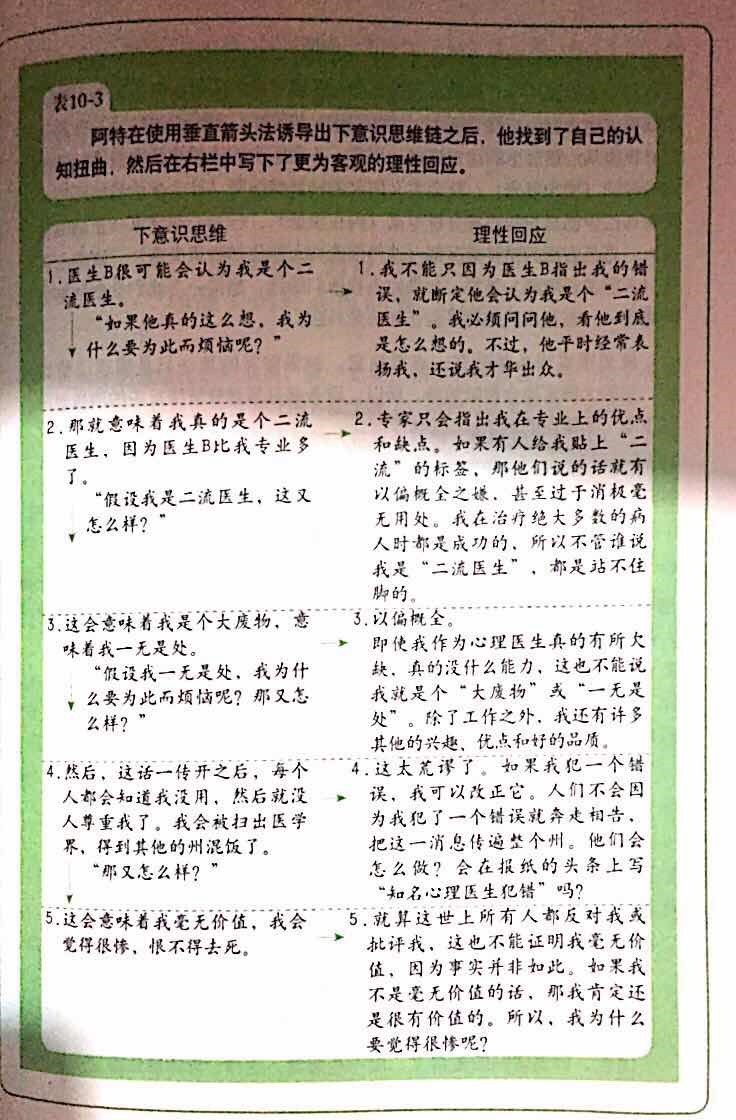 表10-3
阿特在使用垂直箭头法诱导出下意识思维链之后，他找到了自己的认
知扭曲，然后在右栏中写下了更为客观的理性回应。
下意识思维
理性回应
1.医生B很可能会认为我是个二
流医生。
“如果他真的这么想，我为
什么要为此而烦恼呢？”
1.我不能只因为医生B指出我的错
误，就断定他会认为我是个“二流
医生”。我必须问问他，看他到底
是怎么想的。不过，他平时经常表
扬我，还说我才华出众。
2.那就意味着我真的是个二流
医生，因为医生B比我专业多
了。
“假设我是二流医生，这又
怎么样？”
2.专家只会指出我在专业上的优点
和缺点。如果有人给我贴上“二
流”的标签，那他们说的话就有
以偏概全之嫌，甚至过于消极毫
无用处。我在治疗绝大多数的病
人时都是成功的，所以不管谁说
我是“二流医生”，都是站不住
脚的。
3.这会意味着我是个大废物，意
味着我一无是处。
“假设我一无是处，我为什
么要为此而烦恼呢？那又怎
么样？”
3.以偏概全。
即使我作为心理医生真的有所欠
缺，真的没什么能力，这也不能说
我就是个“大废物”或“一无是
处”。除了工作之外，我还有许多
其他的兴趣、优点和好的品质。
4.然后，这话一传开之后，每个
人都会知道我没用，然后就没
人尊重我了。我会被扫出医学
界，得到其他的州混饭了。
“那又怎么样？”
4.这太荒谬了。如果我犯一个错
误，我可以改正它。人们不会因
为我犯了一个错误就奔走相告，
把这一消息传遍整个州。他们会
怎么做？会在报纸的头条上写
“知名心理医生犯错”吗？
5.这会意味着我毫无价值，我会
觉得很惨，恨不得去死。
5.就算这世上所有人都反对我或
批评我，这也不能证明我毫无价
值，因为事实并非如此。如果我
不是毫无价值的话，那我肯定还
是很有价值的。所以，我为什么
要觉得很惨呢？